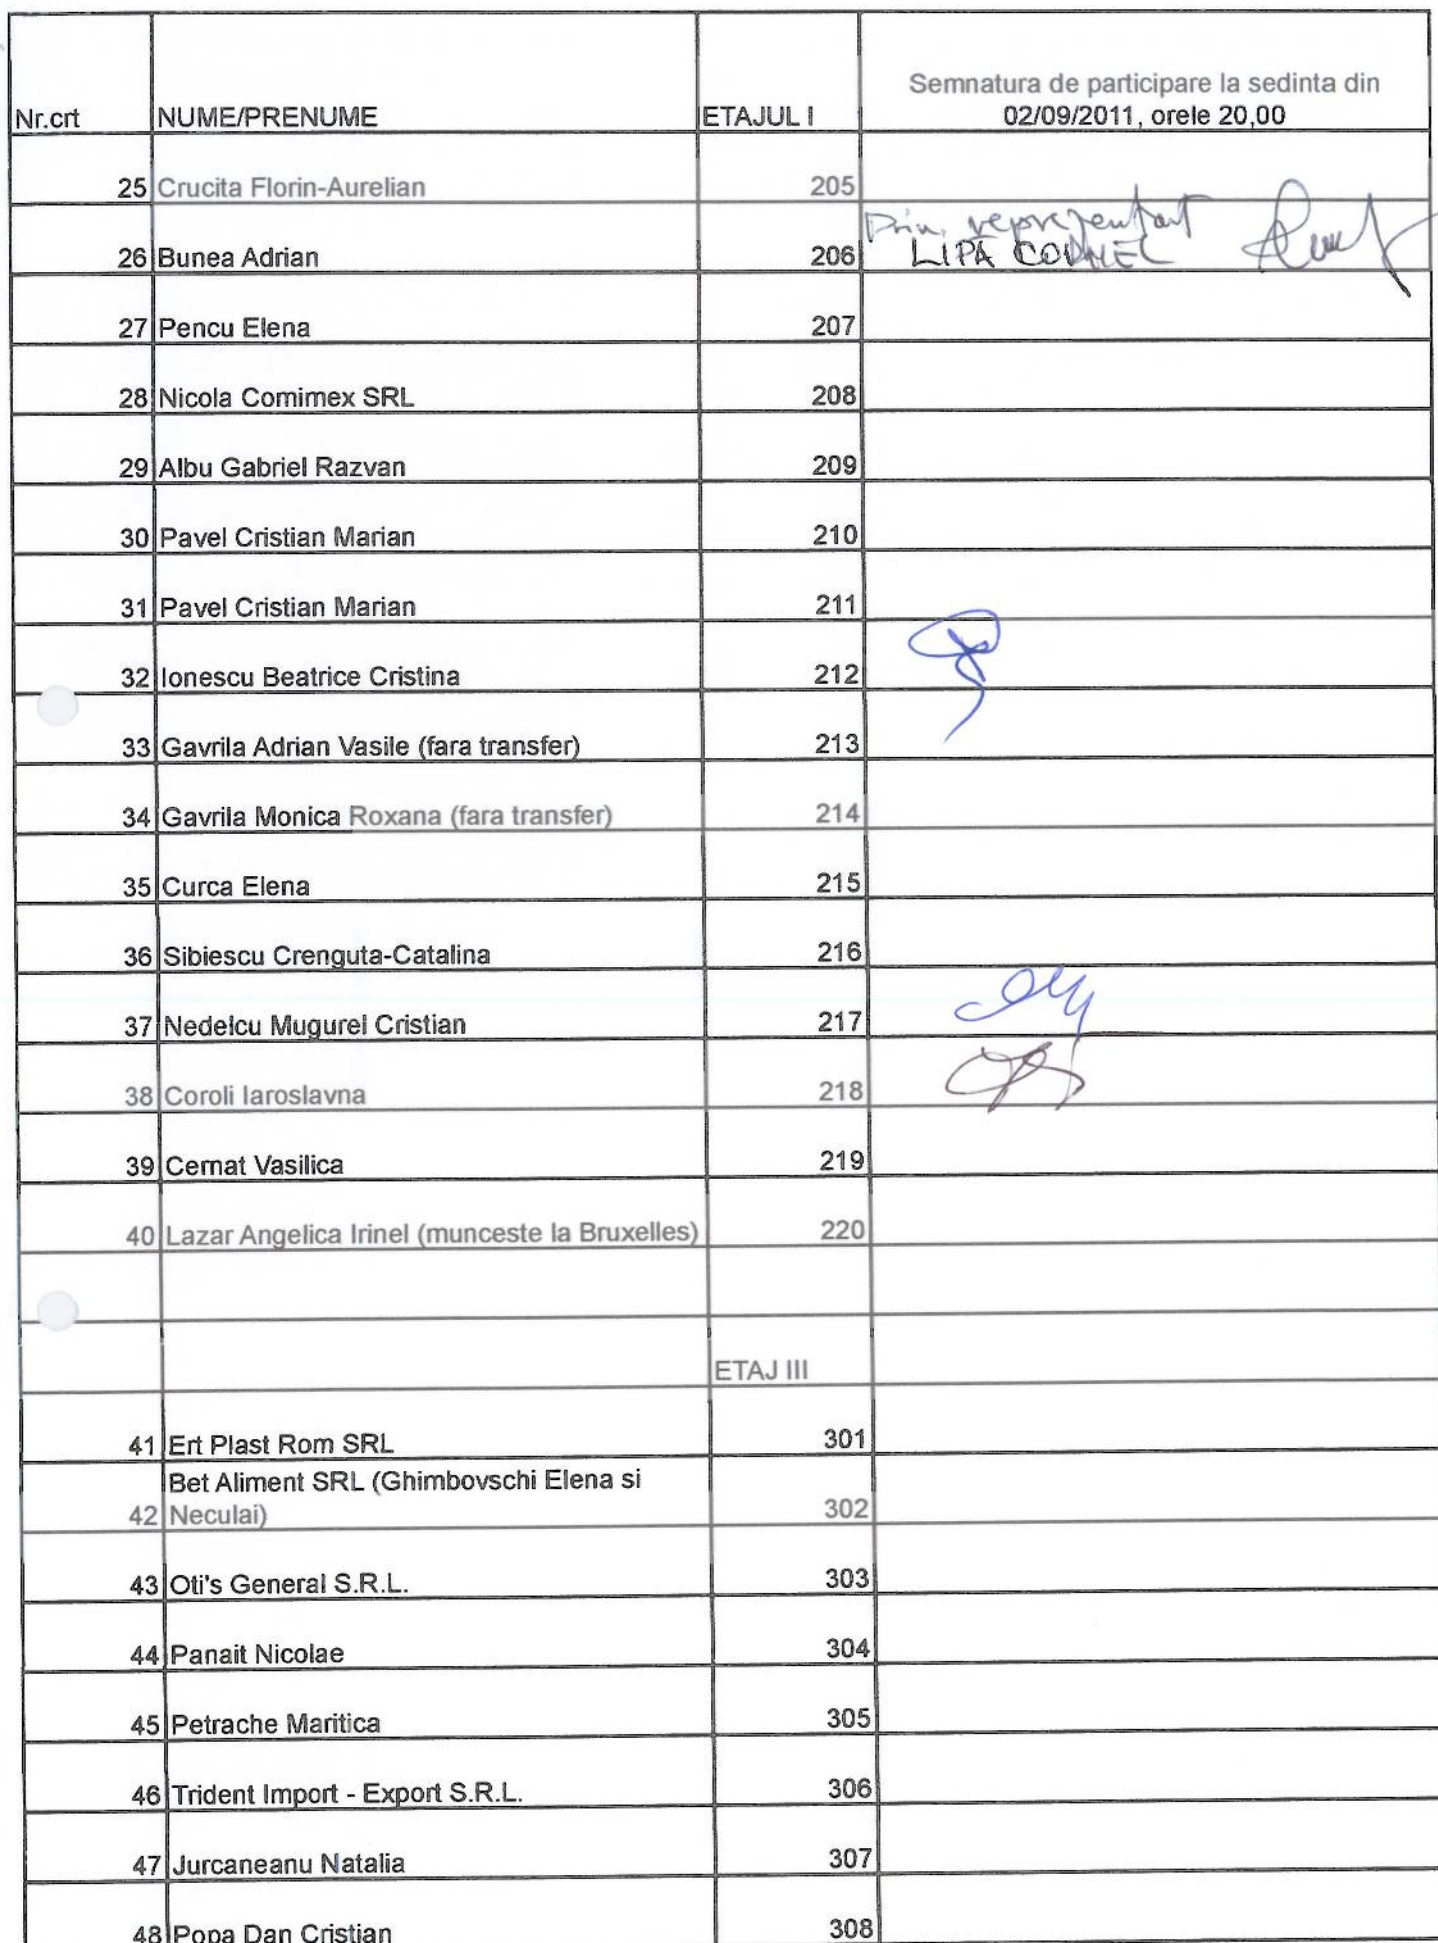 Semnatura de participare la sedinta din
Nr.crt NUME/PRENUME ETAJUL I 02/09/2011, orele 20,00
25 Crucita Florin-Aurelian 205
Prin reprezentant
26 Bunea Adrian 206 LIPA CORNEL
27 Pencu Elena 207
28 Nicola Comimex SRL 208
29 Albu Gabriel Razvan 209
30 Pavel Cristian Marian 210
31 Pavel Cristian Marian 211
32 Ionescu Beatrice Cristina 212
33 Gavrila Adrian Vasile (fara transfer) 213
34 Gavrila Monica Roxana (fara transfer) 214
35 Curca Elena 215
36 Sibiescu Crenguta-Catalina 216
37 Nedelcu Mugurel Cristian 217
38 Coroli Iaroslavna 218
39 Cernat Vasilica 219
40 Lazar Angelica Irinel (munceste la Bruxelles) 220
ETAJ III
41 Ert Plast Rom SRL 301
Bet Aliment SRL (Ghimbovschi Elena si
42 Neculai) 302
43 Oti's General S.R.L. 303
44 Panait Nicolae 304
45 Petrache Maritica 305
46 Trident Import - Export S.R.L. 306
47 Jurcaneanu Natalia 307
48 Popa Dan Cristian 308